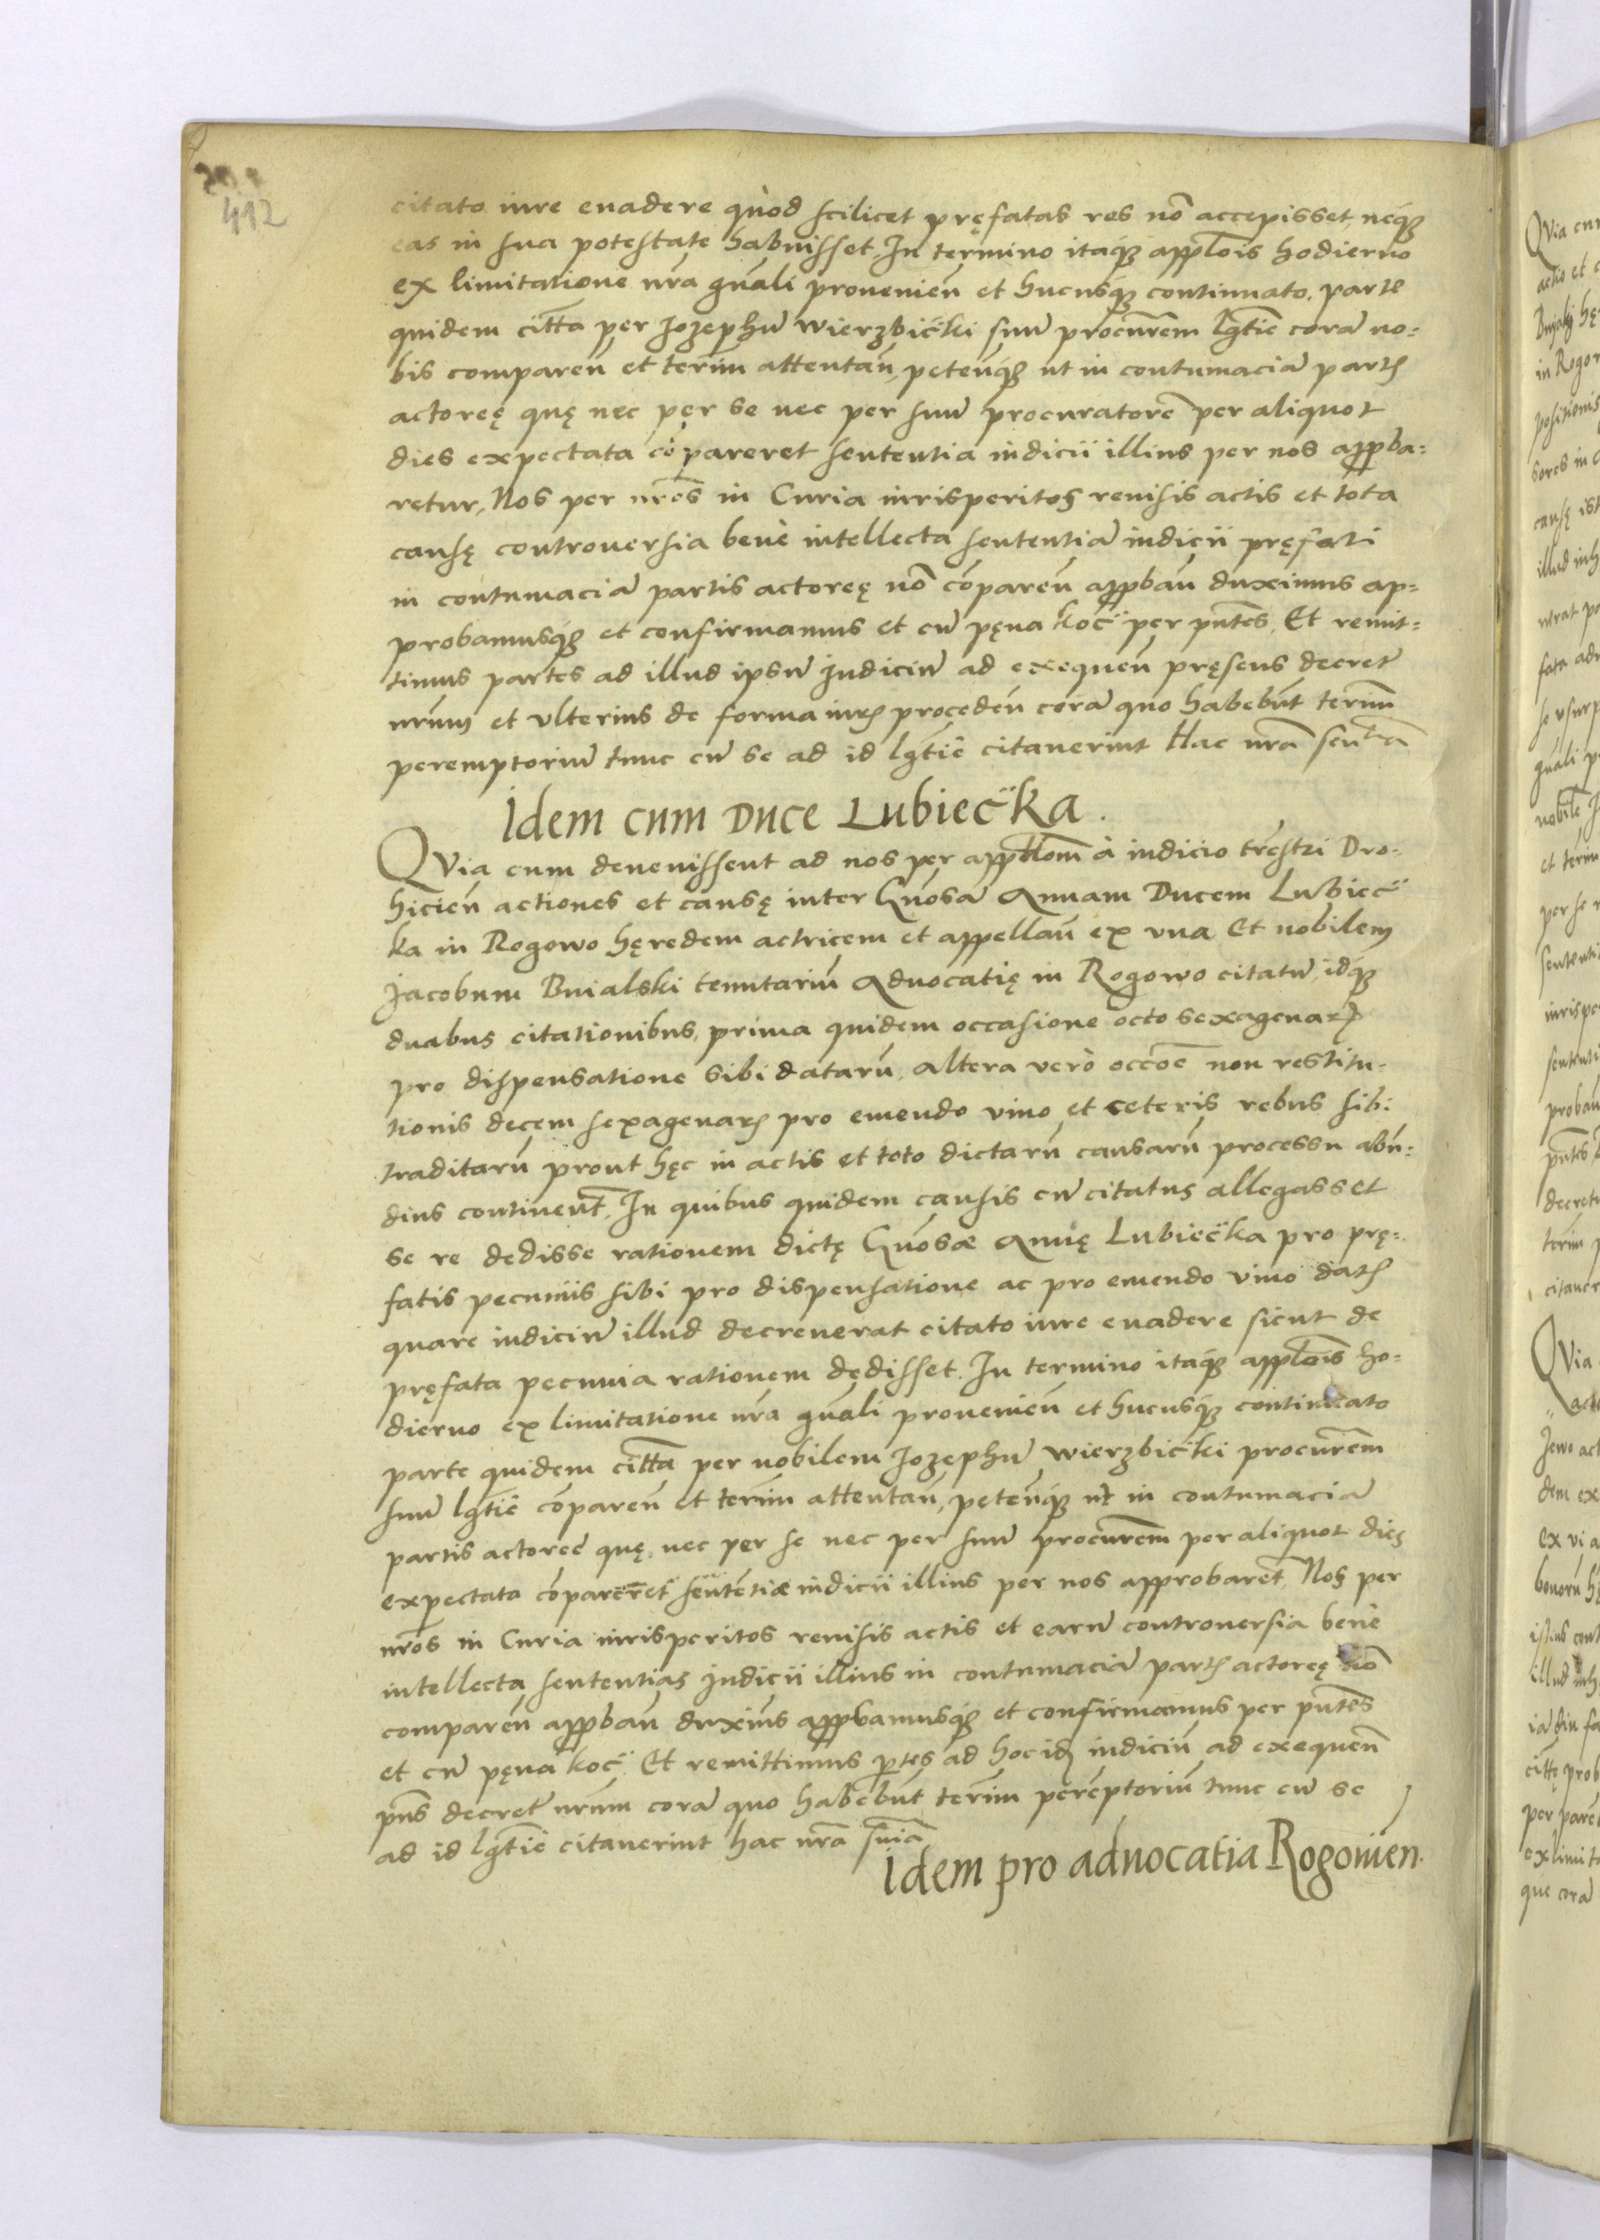 412
citato iure euadere quòd scilicet pręfatas res nõ accepisset, neq́
eas in sua potestate habuisset. In termino itaq́ applõis hodierno
ex limitatione nrã gnãli prouenieñ et hucusq́ continuato. parte
quidem citta per Jozephũ Wierzbiċki suũ procurem̃ lgtĩe corã no-
bis compareñ et termĩ attentañ, peteñq́ ut in contumaciã partꝭ
actoreę quę nec per se nec per suũ procuratorẽ per aliquot
dies expectata cõpareret sententia iudicii illius per nos apprba-
retur, Nos per nrõs in Curia iurisperitos reuisis actis et tota
causę controuersia benè intellecta sententiã iudicii pręfati
in contumaciã partis actoreę nõ cõpareñ apprbañ duximus ap-
probamusq́ et confirmamus et cũ pęna koċ per pnt̃es. Et remit-
timus partes ad illud ipsũ Judiciũ ad exequeñ pręsens decretũ
nrũm et vlterius de forma iurꝭ procedeñ corã quo habebũt termĩ
peremptoriũ tunc cũ se ad id lgtĩe citauerint Hac nrã sentã
Idem cum Duce Lubieċka.
QVia cum deuenissent ad nos per applõm à iudicio trẽstri Dro-
hicieñ actiones et causę inter Gñosã Annam Ducem Lubieċ
ka in Rogowo hęredem actricem et appellañ ex vna Et nobilem
Jacobum Buialski tenutariũ Aduocatię in Rogowo citatũ, idq́
duabus citationibus, prima quidem occasione octo sexagenarꝝ
pro dispensatione sibi datarũ, altera verò occõe non restitu-
tionis decem sexagenarꝝ pro emendo vino et ceteris rebus sibi
traditarũ prout hęc in actis et toto dictarũ causarũ processu abũ-
dius continent̃. In quibus quidem causis cũ citatus allegasset
se re dedisse rationem dictę Gñosæ Annę Lubieċka pro prę-
fatis pecuniis sibi pro dispensatione ac pro emendo vino datꝭ
quare iudiciũ illud decreuerat citato iure euadere sicut de
pręfata pecunia rationem dedisset. In termino itaq́ applõis ho-
dierno ex limitatione nrã gnãli prouenieñ et hucusq́ continuato
parte quidem citta per nobilem Jozephũ Wierzbiċki procurem̃
suũ lgtĩe cõpareñ et termĩ attentañ, peteñq́ ut in contumaciã
partis actoreę quę nec per se nec per suũ procurem̃ per aliquot dies
expectata cõpareret sententiæ iudicii illius per nos approbarent̃ Nos per
nrõs in Curia iurisperitos reuisis actis et earũ controuersia benè
intellecta sententias Judicii illius in contumaciã partꝭ actoreę nõ
compareñ apprbañ duxim̃us apprbamusq́ et confirmamus per pnt̃es
et cũ pęna koċ. Et remittimus ptes ad hoc idẽ iudiciũ ad exequeñ
pñs decretũ nrũm corã quo habebũt termĩ perẽptoriũ tunc cũ se
ad id lgtĩe citauerint hac nrã sñia
Idem pro aduocatia Rogouien.